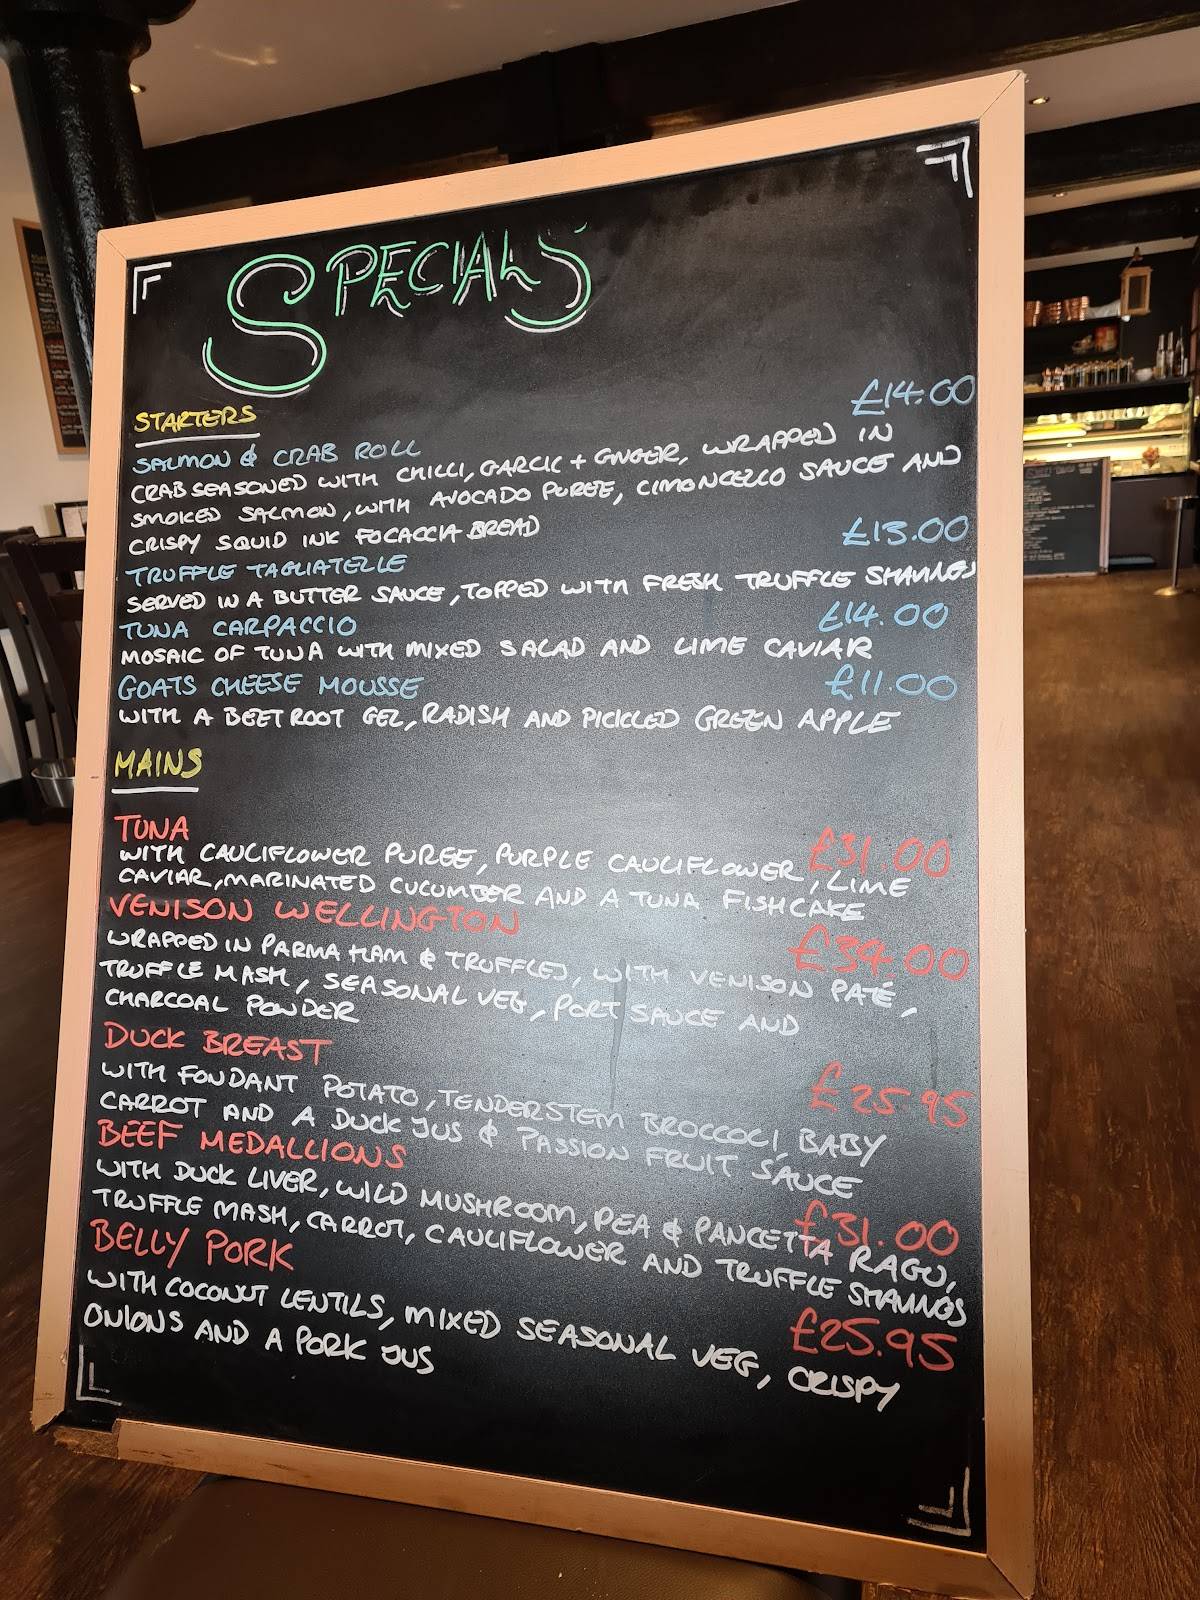 SPECIALS
STARTERS
£14.00
SALMON & CRAB ROLL
CRAB SEASONED WITH CHILLI, GARLIC + GINGER, WRAPPED IN
SMOKED SALMON, WITH AVOCADO PUREE, LIMONCELLO SAUCE AND
CRISPY SQUID INK FOCACCIA BREAD
£13.00
TRUFFLE TAGLIATELLE
SERVED IN A BUTTER SAUCE, TOPPED WITH FRESH TRUFFLE SHAVINGS
TUNA CARPACCIO £14.00
MOSAIC OF TUNA WITH MIXED SALAD AND LIME CAVIAR
GOATS CHEESE MOUSSE £11.00
WITH A BEETROOT GEL, RADISH AND PICKLED GREEN APPLE
MAINS
TUNA £31.00
WITH CAULIFLOWER PUREE, PURPLE CAULIFLOWER, LIME
CAVIAR, MARINATED CUCUMBER AND A TUNA FISHCAKE
VENISON WELLINGTON £34.00
WRAPPED IN PARMA HAM & TRUFFLES, WITH VENISON PATÉ,
TRUFFLE MASH, SEASONAL VEG, PORT SAUCE AND
CHARCOAL POWDER
DUCK BREAST £25.95
WITH FONDANT POTATO, TENDERSTEM BROCCOLI, BABY
CARROT AND A DUCK JUS & PASSION FRUIT SAUCE
BEEF MEDALLIONS £31.00
WITH DUCK LIVER, WILD MUSHROOM, PEA & PANCETTA RAGU,
TRUFFLE MASH, CARROT, CAULIFLOWER AND TRUFFLE SHAVINGS
BELLY PORK £25.95
WITH COCONUT LENTILS, MIXED SEASONAL VEG, CRISPY
ONIONS AND A PORK JUS